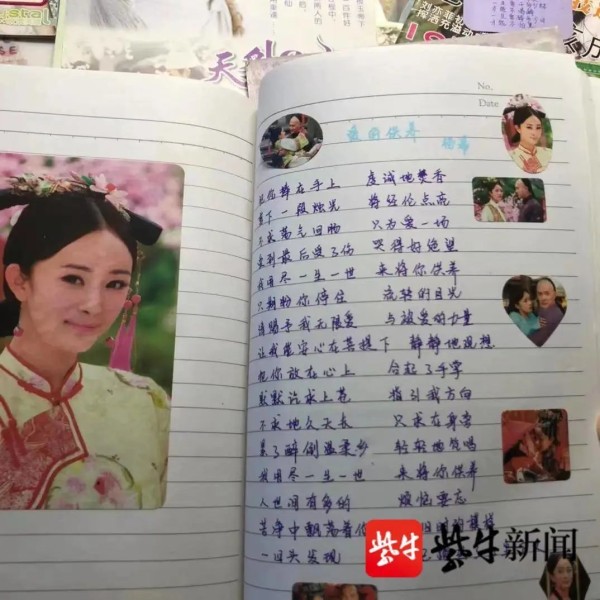 天外
刘亦菲
No.
Date
爱的供养
杨幂
把你捧在手上 虔诚地焚香
剪下一段烛光 将经纶点亮
不求荡气回肠 只为爱一场
爱到最后受了伤 哭得好绝望
我用尽一生一世 来将你供养
只期盼你停住 流转的目光
请赐予我无限爱 与被爱的力量
让我能安心在菩提下 静静地观想
把你放在心上 合起了手掌
默默祈求上苍 指引我方向
不求地久天长 只求在身旁
累了醉倒温柔乡 轻轻地梵唱
我用尽一生一世 来将你供养
人世间有多的 烦恼要忘
苦海中翻荡着你 旧时的模样
一回头发现
紫牛 紫牛新闻